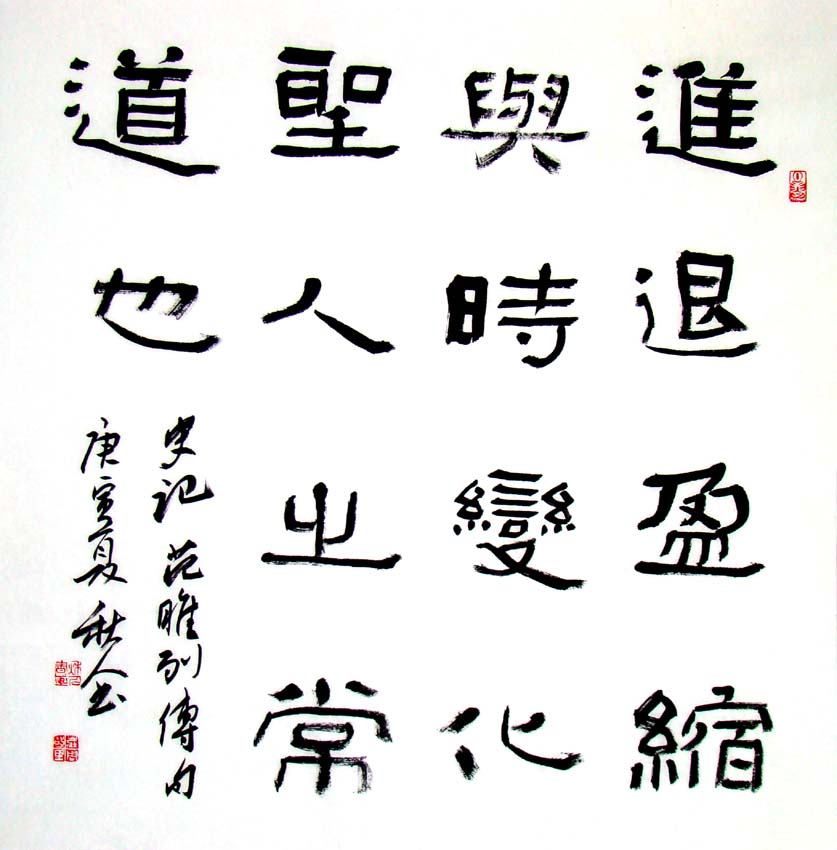 進退盈縮
與時變化
聖人之常
道也
史记范雎列傳句
庚寅夏秋人书